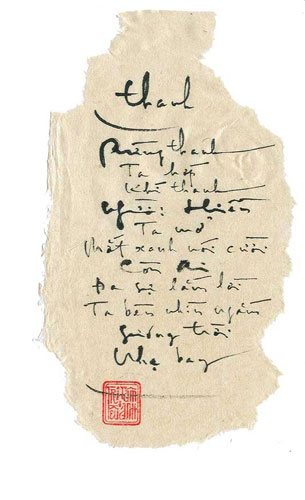 thanh
Rừng thanh
Ta hớp
Khí thanh
Người: Hiền
Ta mơ
Mắt xanh nói cười
Còn Ai
Đa sự lắm lời
Ta bèn nhìn ngắm
trời
Nhẹ bay